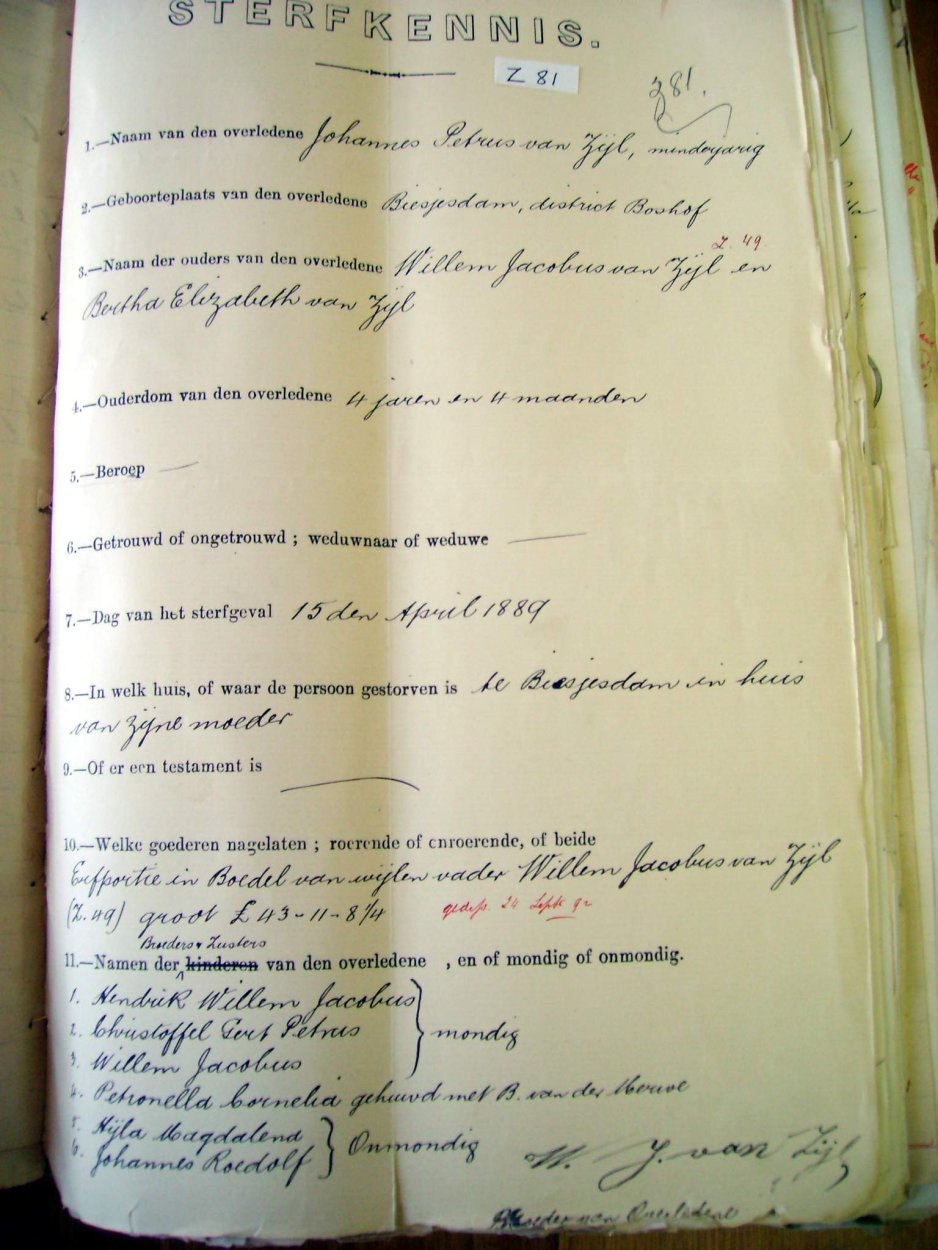 STERFKENNIS.
Z 81
Z 81.
1.—Naam van den overledene Johannes Petrus van Zijl, minderjarig
2.—Geboorteplaats van den overledene Biesjesdam, district Boshof
Z. 49
3.—Naam der ouders van den overledene Willem Jacobus van Zijl en
Bertha Elizabeth van Zijl
4.—Ouderdom van den overledene 4 jaren en 4 maanden
5.—Beroep —
6.—Getrouwd of ongetrouwd ; weduwnaar of weduwe —
7.—Dag van het sterfgeval 15 den April 1889
8.—In welk huis, of waar de persoon gestorven is te Biesjesdam in huis
van zijne moeder
9.—Of er een testament is —
10.—Welke goederen nagelaten ; roerende of onroerende, of beide
Erfportie in Boedel van wijlen vader Willem Jacobus van Zijl
(Z. 49) groot £ 43-11-8 1/4 gedep. 24 Sept. 92
Broeders & Zusters
11.—Namen der kinderen van den overledene , en of mondig of onmondig.
1. Hendrik Willem Jacobus
2. Christoffel Gert Petrus } mondig
3. Willem Jacobus
4. Petronella Cornelia gehuwd met B. van der Merwe
5. Hijla Magdalena
6. Johannes Roedolf } Onmondig
W. J. van Zijl
Broeder van Overledene